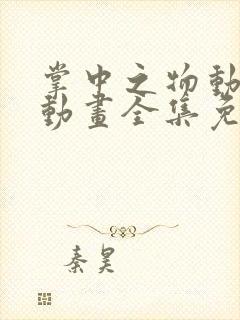 掌中之物動
動畫全集免
秦昊